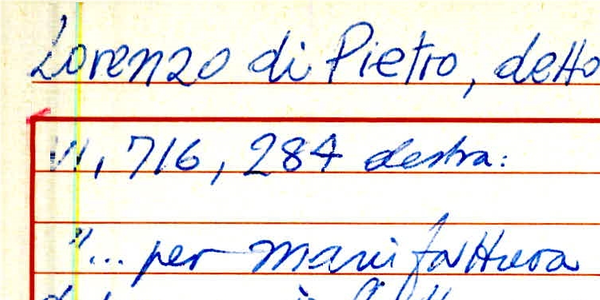 Lorenzo di Pietro, detto
VI, 716, 284 destra:
"... per manifattura